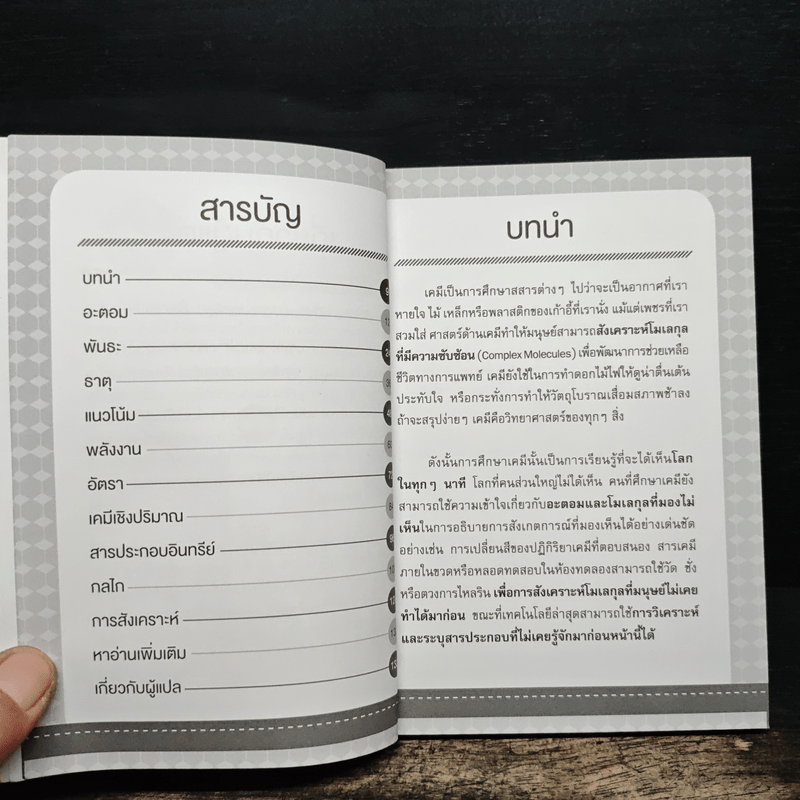 สารบัญ
บทนำ
อะตอม
พันธะ
ธาตุ
แนวโน้ม
พลังงาน
อัตรา
เคมีเชิงปริมาณ
สารประกอบอินทรีย์
กลไก
การสังเคราะห์
หาอ่านเพิ่มเติม
เกี่ยวกับผู้แปล
บทนำ
เคมีเป็นการศึกษาสสารต่างๆ ไปว่าจะเป็นอากาศที่เรา
หายใจ ไม้ เหล็กหรือพลาสติกของเก้าอี้ที่เรานั่ง แม้แต่เพชรที่เรา
สวมใส่ ศาสตร์ด้านเคมีทำให้มนุษย์สามารถสังเคราะห์โมเลกุล
ที่มีความซับซ้อน (Complex Molecules) เพื่อพัฒนาการช่วยเหลือ
ชีวิตทางการแพทย์ เคมียังใช้ในการทำดอกไม้ไฟให้ดูน่าตื่นเต้น
ประทับใจ หรือกระทั่งการทำให้วัตถุโบราณเสื่อมสภาพช้าลง
ถ้าจะสรุปง่ายๆ เคมีคือวิทยาศาสตร์ของทุกๆ สิ่ง
ดังนั้นการศึกษาเคมีนั้นเป็นการเรียนรู้ที่จะได้เห็นโลก
ในทุกๆ นาที โลกที่คนส่วนใหญ่ไม่ได้เห็น คนที่ศึกษาเคมียัง
สามารถใช้ความเข้าใจเกี่ยวกับอะตอมและโมเลกุลที่มองไม่
เห็นในการอธิบายการสังเกตการณ์ที่มองเห็นได้อย่างเด่นชัด
อย่างเช่น การเปลี่ยนสีของปฏิกิริยาเคมีที่ตอบสนอง สารเคมี
ภายในขวดหรือหลอดทดสอบในห้องทดลองสามารถใช้วัด ชั่ง
หรือตวงการไหลริน เพื่อการสังเคราะห์โมเลกุลที่มนุษย์ไม่เคย
ทำได้มาก่อน ขณะที่เทคโนโลยีล่าสุดสามารถใช้การวิเคราะห์
และระบุสารประกอบที่ไม่เคยรู้จักมาก่อนหน้านี้ได้